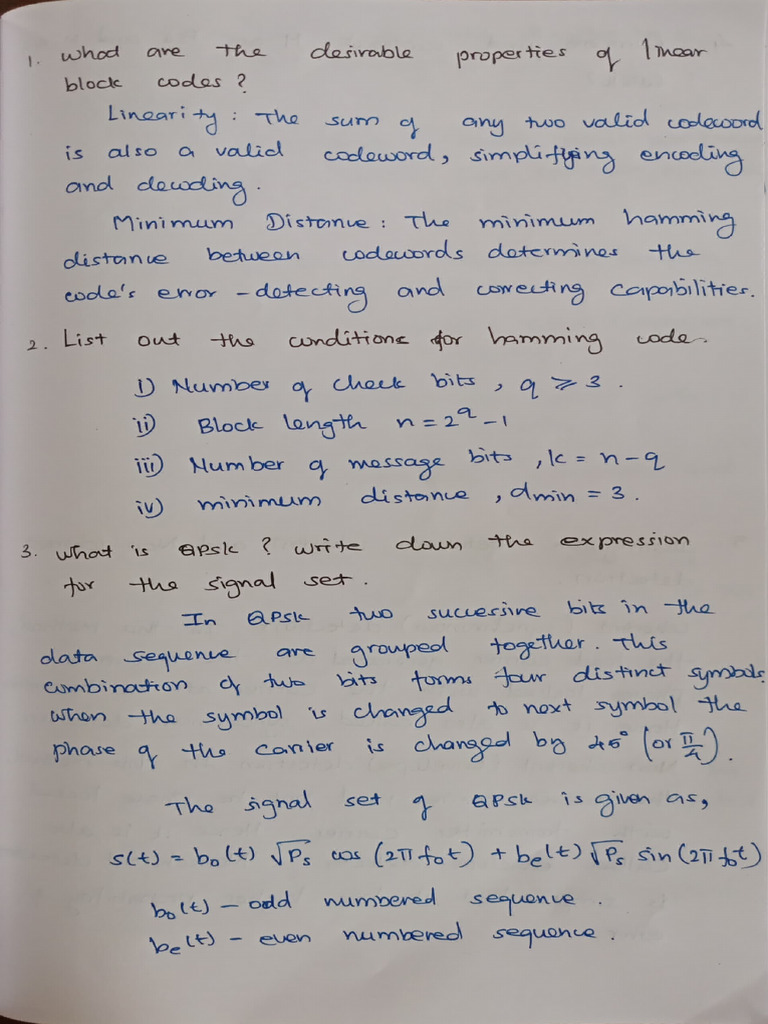 1. what are the desirable properties of linear
block codes?
Linearity: The sum of any two valid codeword
is also a valid codeword, simplifying encoding
and decoding.
Minimum Distance: The minimum hamming
distance between codewords determines the
code's error-detecting and correcting capabilities.
2. List out the conditions for hamming code.
i) Number of check bits, q ≥ 3.
ii) Block length n = 2^q - 1
iii) Number of message bits, k = n - q
iv) minimum distance, dmin = 3.
3. what is QPSK? write down the expression
for the signal set.
In QPSK two successive bits in the
data sequence are grouped together. This
combination of two bits forms four distinct symbols.
when the symbol is changed to next symbol the
phase of the carrier is changed by 45° (or π/4).
The signal set of QPSK is given as,
s(t) = b₀(t) √Ps cos (2π f₀t) + be(t) √Ps sin (2π f₀t)
b₀(t) - odd numbered sequence.
be(t) - even numbered sequence.